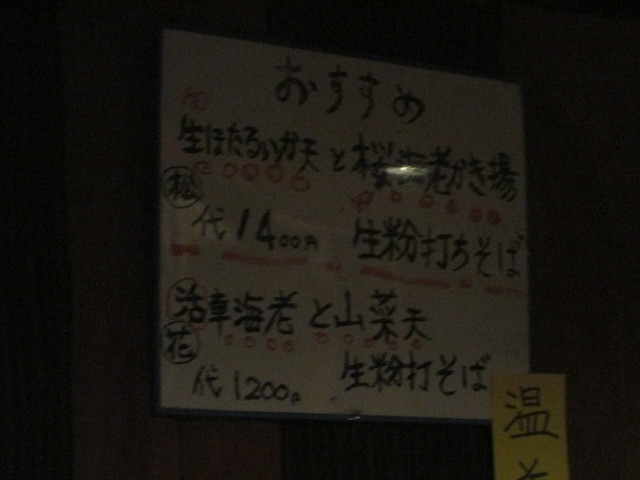 おすすめ
旬
生ほたるいか天と桜海老かき揚
松
代1400円 生粉打ちそば
活車海老と山菜天
花
生粉打そば
代1200円
温